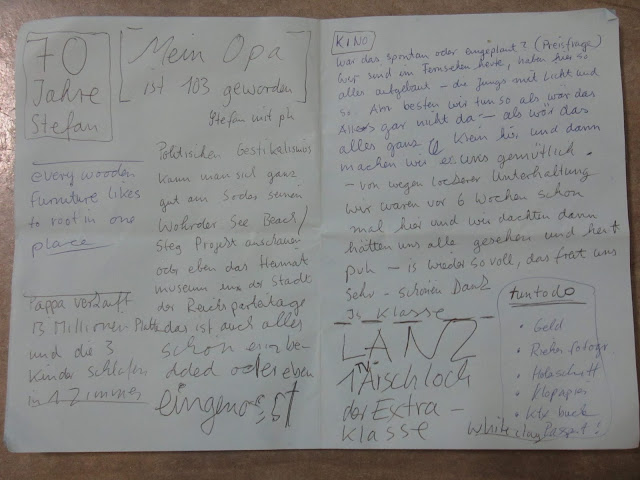 70
Jahre
Stefan
Mein Opa
ist 103 geworden
Stefan mit ph
every wooden
furniture likes
to root in one
place
Pappa verkauft
13 Millionen Platten
und die 3
Kinder schlafen
in 1 Zimmer
Politischen Gestikalismus
kann man sich ganz
gut am
See Beach/
Steg Projekt anschauen
oder eben das Heimat
museum uns der Stadt
der Reichsparteitage
das ist auch alles
schön embe-
dded oder eben
KINO
War das spontan oder eingeplant? (Preisfrage)
Wir sind im Fernsehen heute, haben hier so
alles aufgebaut - die Jungs mit Licht und
so. Am besten wir tun so als wär das
Alles gar nicht da - als wär das
alles ganz klein hier und dann
machen wir es uns gemütlich.
- von wegen lockerer Unterhaltung
Wir waren vor 6 Wochen schon
mal hier und wir dachten dann
hätten uns alle gesehen und heut
puh - is wieder so voll, das freut uns
sehr - schönen Dank
Is Klasse
LANZ
1 Arschloch
der Extra-
klasse
to do
• Geld
• Klopapier
• back
White clay